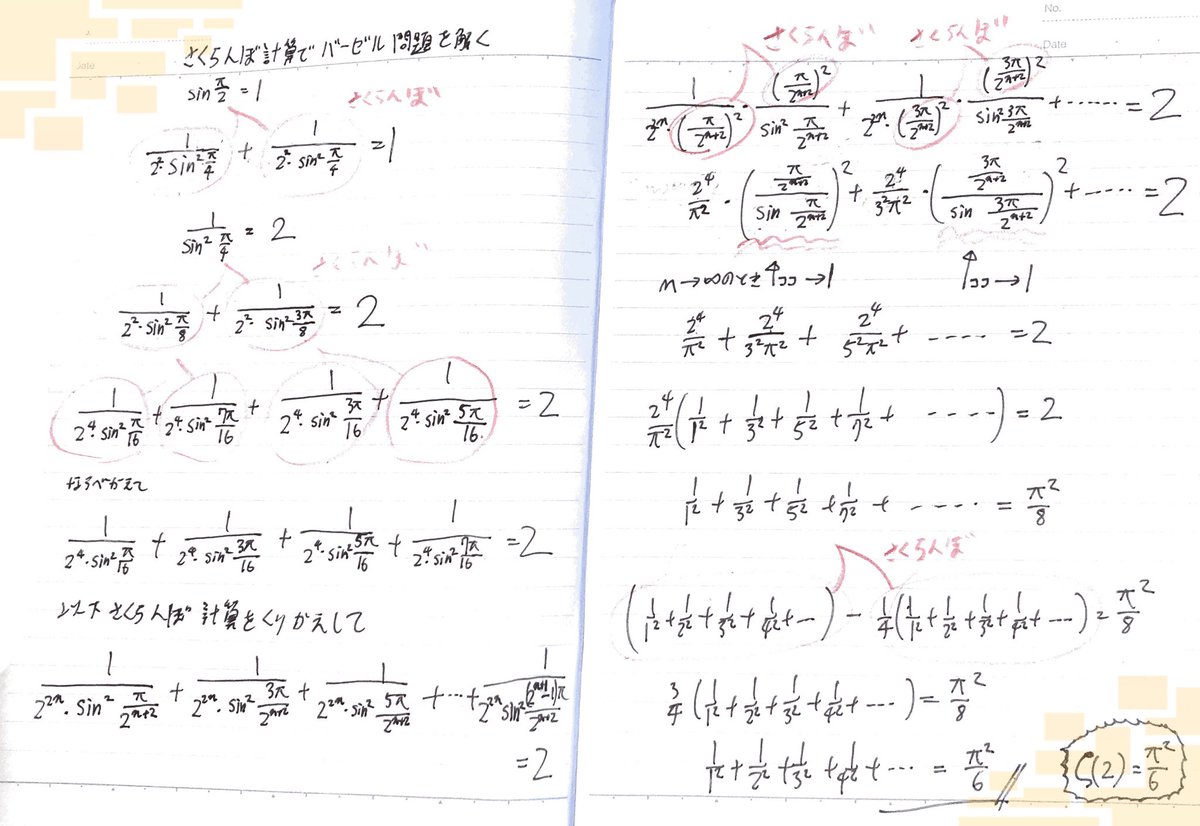 さくらんぼ計算でバーゼル問題を解く
sin π/2 = 1
さくらんぼ
1/(2²·sin² π/4) + 1/(2²·sin² π/4) = 1
1/(sin² π/4) = 2
さくらんぼ
1/(2²·sin² π/8) + 1/(2²·sin² 3π/8) = 2
1/(2⁴·sin² π/16) + 1/(2⁴·sin² 7π/16) + 1/(2⁴·sin² 3π/16) + 1/(2⁴·sin² 5π/16) = 2
ならべかえて
1/(2⁴·sin² π/16) + 1/(2⁴·sin² 3π/16) + 1/(2⁴·sin² 5π/16) + 1/(2⁴·sin² 7π/16) = 2
以下さくらんぼ計算をくりかえして
1/(2²ⁿ·sin² π/2ⁿ⁺²) + 1/(2²ⁿ·sin² 3π/2ⁿ⁺²) + 1/(2²ⁿ·sin² 5π/2ⁿ⁺²) + ··· + 1/(2²ⁿ sin² (2ⁿ⁺¹-1)π/2ⁿ⁺²)
= 2
No.
Date
さくらんぼ さくらんぼ
1/(2²ⁿ·(π/2ⁿ⁺²)²) · (π/2ⁿ⁺²)²/(sin² π/2ⁿ⁺²) + 1/(2²ⁿ·(3π/2ⁿ⁺²)²) · (3π/2ⁿ⁺²)²/(sin² 3π/2ⁿ⁺²) + ······ = 2
2⁴/π² · ((π/2ⁿ⁺²)/(sin π/2ⁿ⁺²))² + 2⁴/3²π² · ((3π/2ⁿ⁺²)/(sin 3π/2ⁿ⁺²))² + ····· = 2
n→∞のとき ↑ココ→1 ↑ココ→1
2⁴/π² + 2⁴/3²π² + 2⁴/5²π² + ····· = 2
2⁴/π² (1/1² + 1/3² + 1/5² + 1/7² + ·····) = 2
1/1² + 1/3² + 1/5² + 1/7² + ····· = π²/8
さくらんぼ
(1/1² + 1/2² + 1/3² + 1/4² + ···) − 1/4 (1/1² + 1/2² + 1/3² + 1/4² + ···) = π²/8
3/4 (1/1² + 1/2² + 1/3² + 1/4² + ···) = π²/8
1/1² + 1/2² + 1/3² + 1/4² + ··· = π²/6
ζ(2) = π²/6